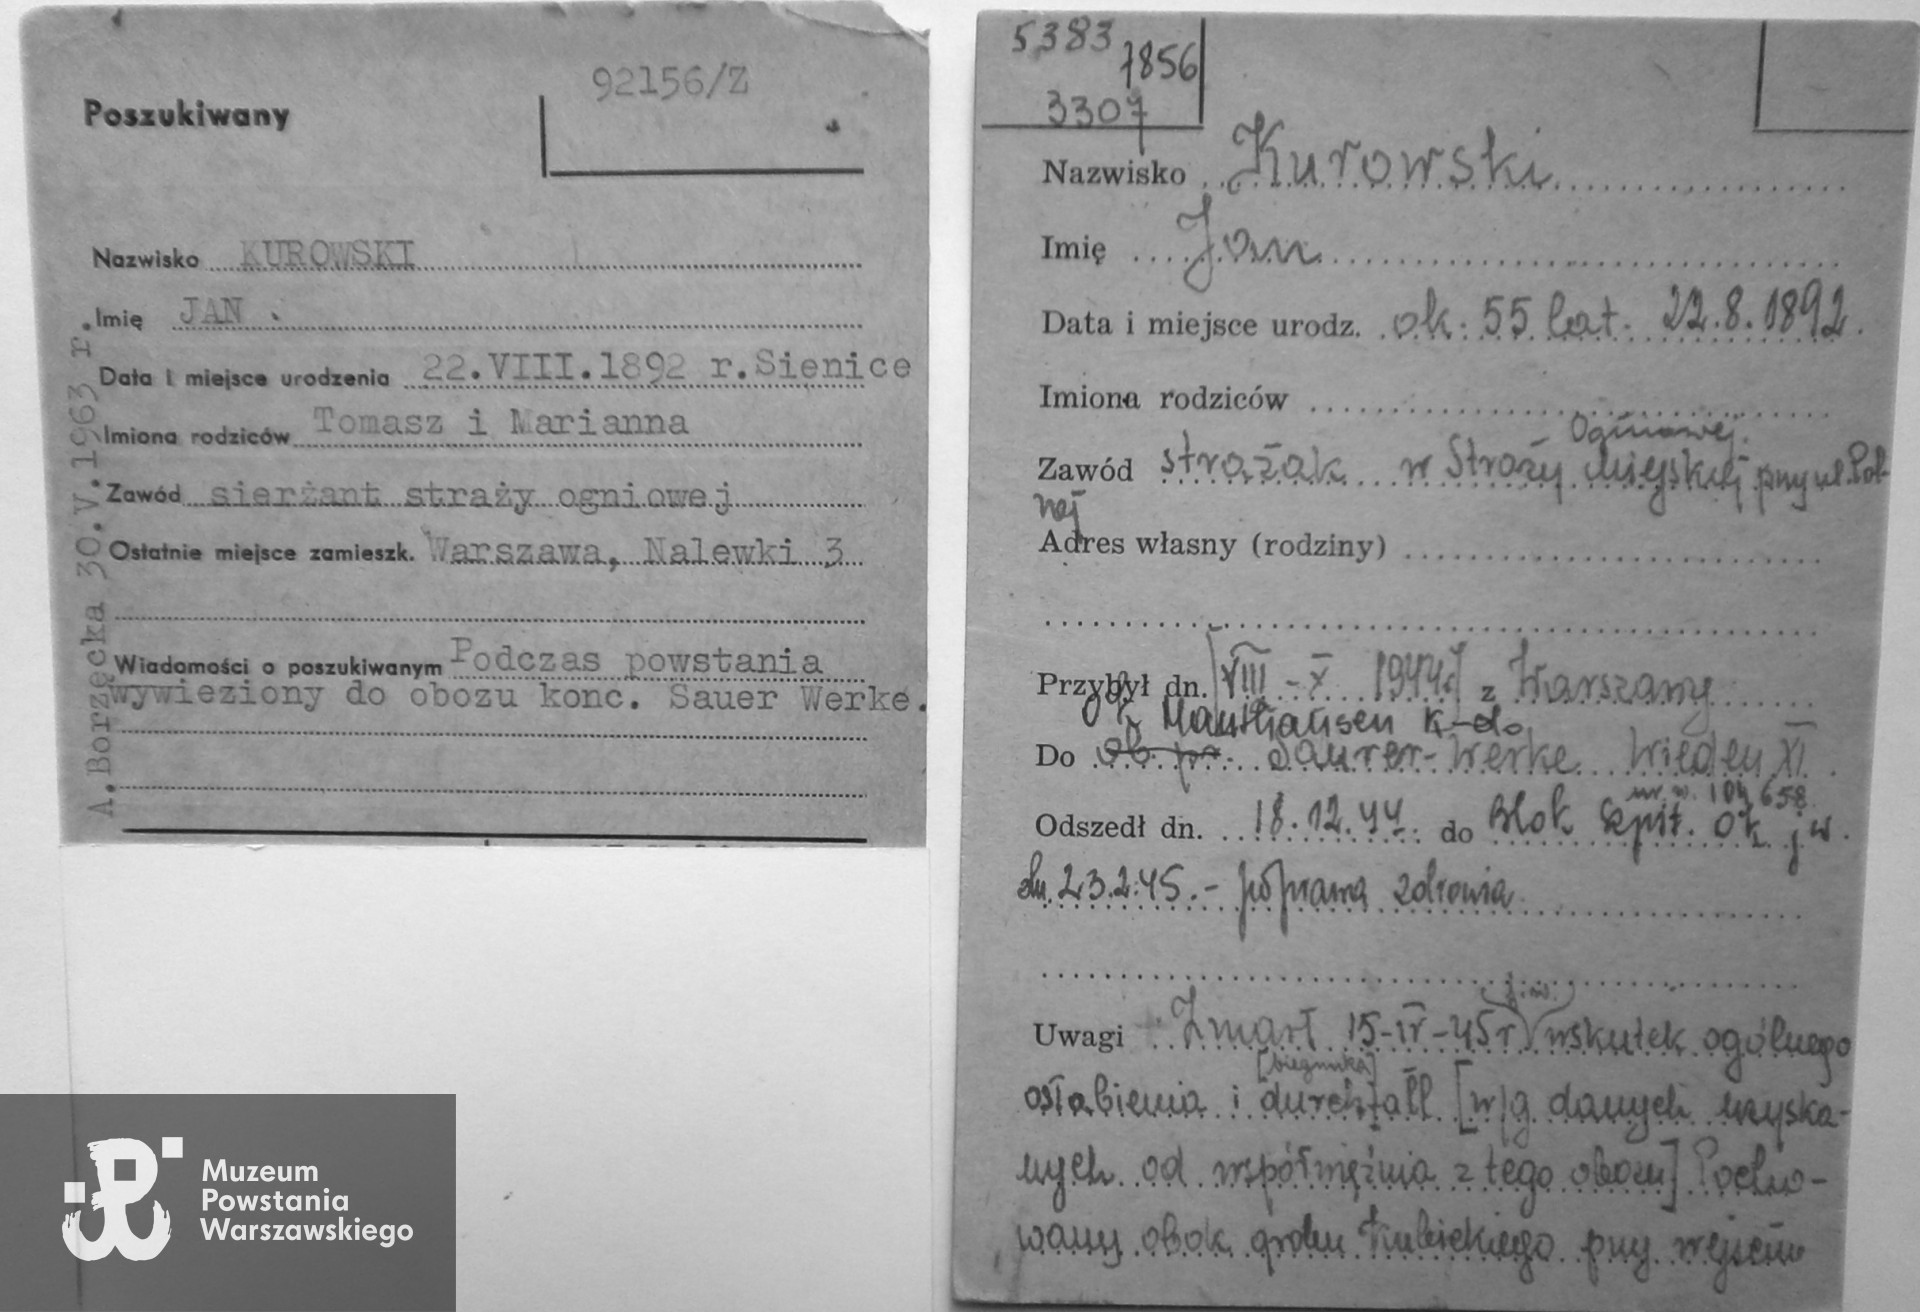 92156/Z
Poszukiwany
Nazwisko KUROWSKI
Imię JAN .
Data i miejsce urodzenia 22.VIII.1892 r.Sienice
Imiona rodziców Tomasz i Marianna
Zawód sierżant straży ogniowej
Ostatnie miejsce zamieszk. Warszawa, Nalewki 3
Wiadomości o poszukiwanym Podczas powstania
wywieziony do obozu konc. Sauer Werke.
A. Borzęcka 30.V.1963 r.
5383
7856
3307
Nazwisko Kurowski
Imię Jan
Data i miejsce urodz. ok. 55 lat. 22.8.1892.
Imiona rodziców
Ogniowej
Zawód strażak w Straży Miejskiej przy ul. Pol-
nej
Adres własny (rodziny)
Przybył dn. [VIII-X 1944r] z Warszawy
ok Mauthausen K-do
Do ob. pr. Saurer-Werke Wieden XI
nr. w. 104658
Odszedł dn. 18.12.44. do Blok szpit. ok jw.
dn. 23.2.45.- poprawa zdrowia
Uwagi Zmarł 15-IV-45r wskutek ogólnego
[biegunka]
osłabienia i durchfall [w/g danych uzyska-
nych od współwięźnia z tego obozu] Pocho-
wany obok grobu Kubickiego przy wejściu
Muzeum
Powstania
Warszawskiego